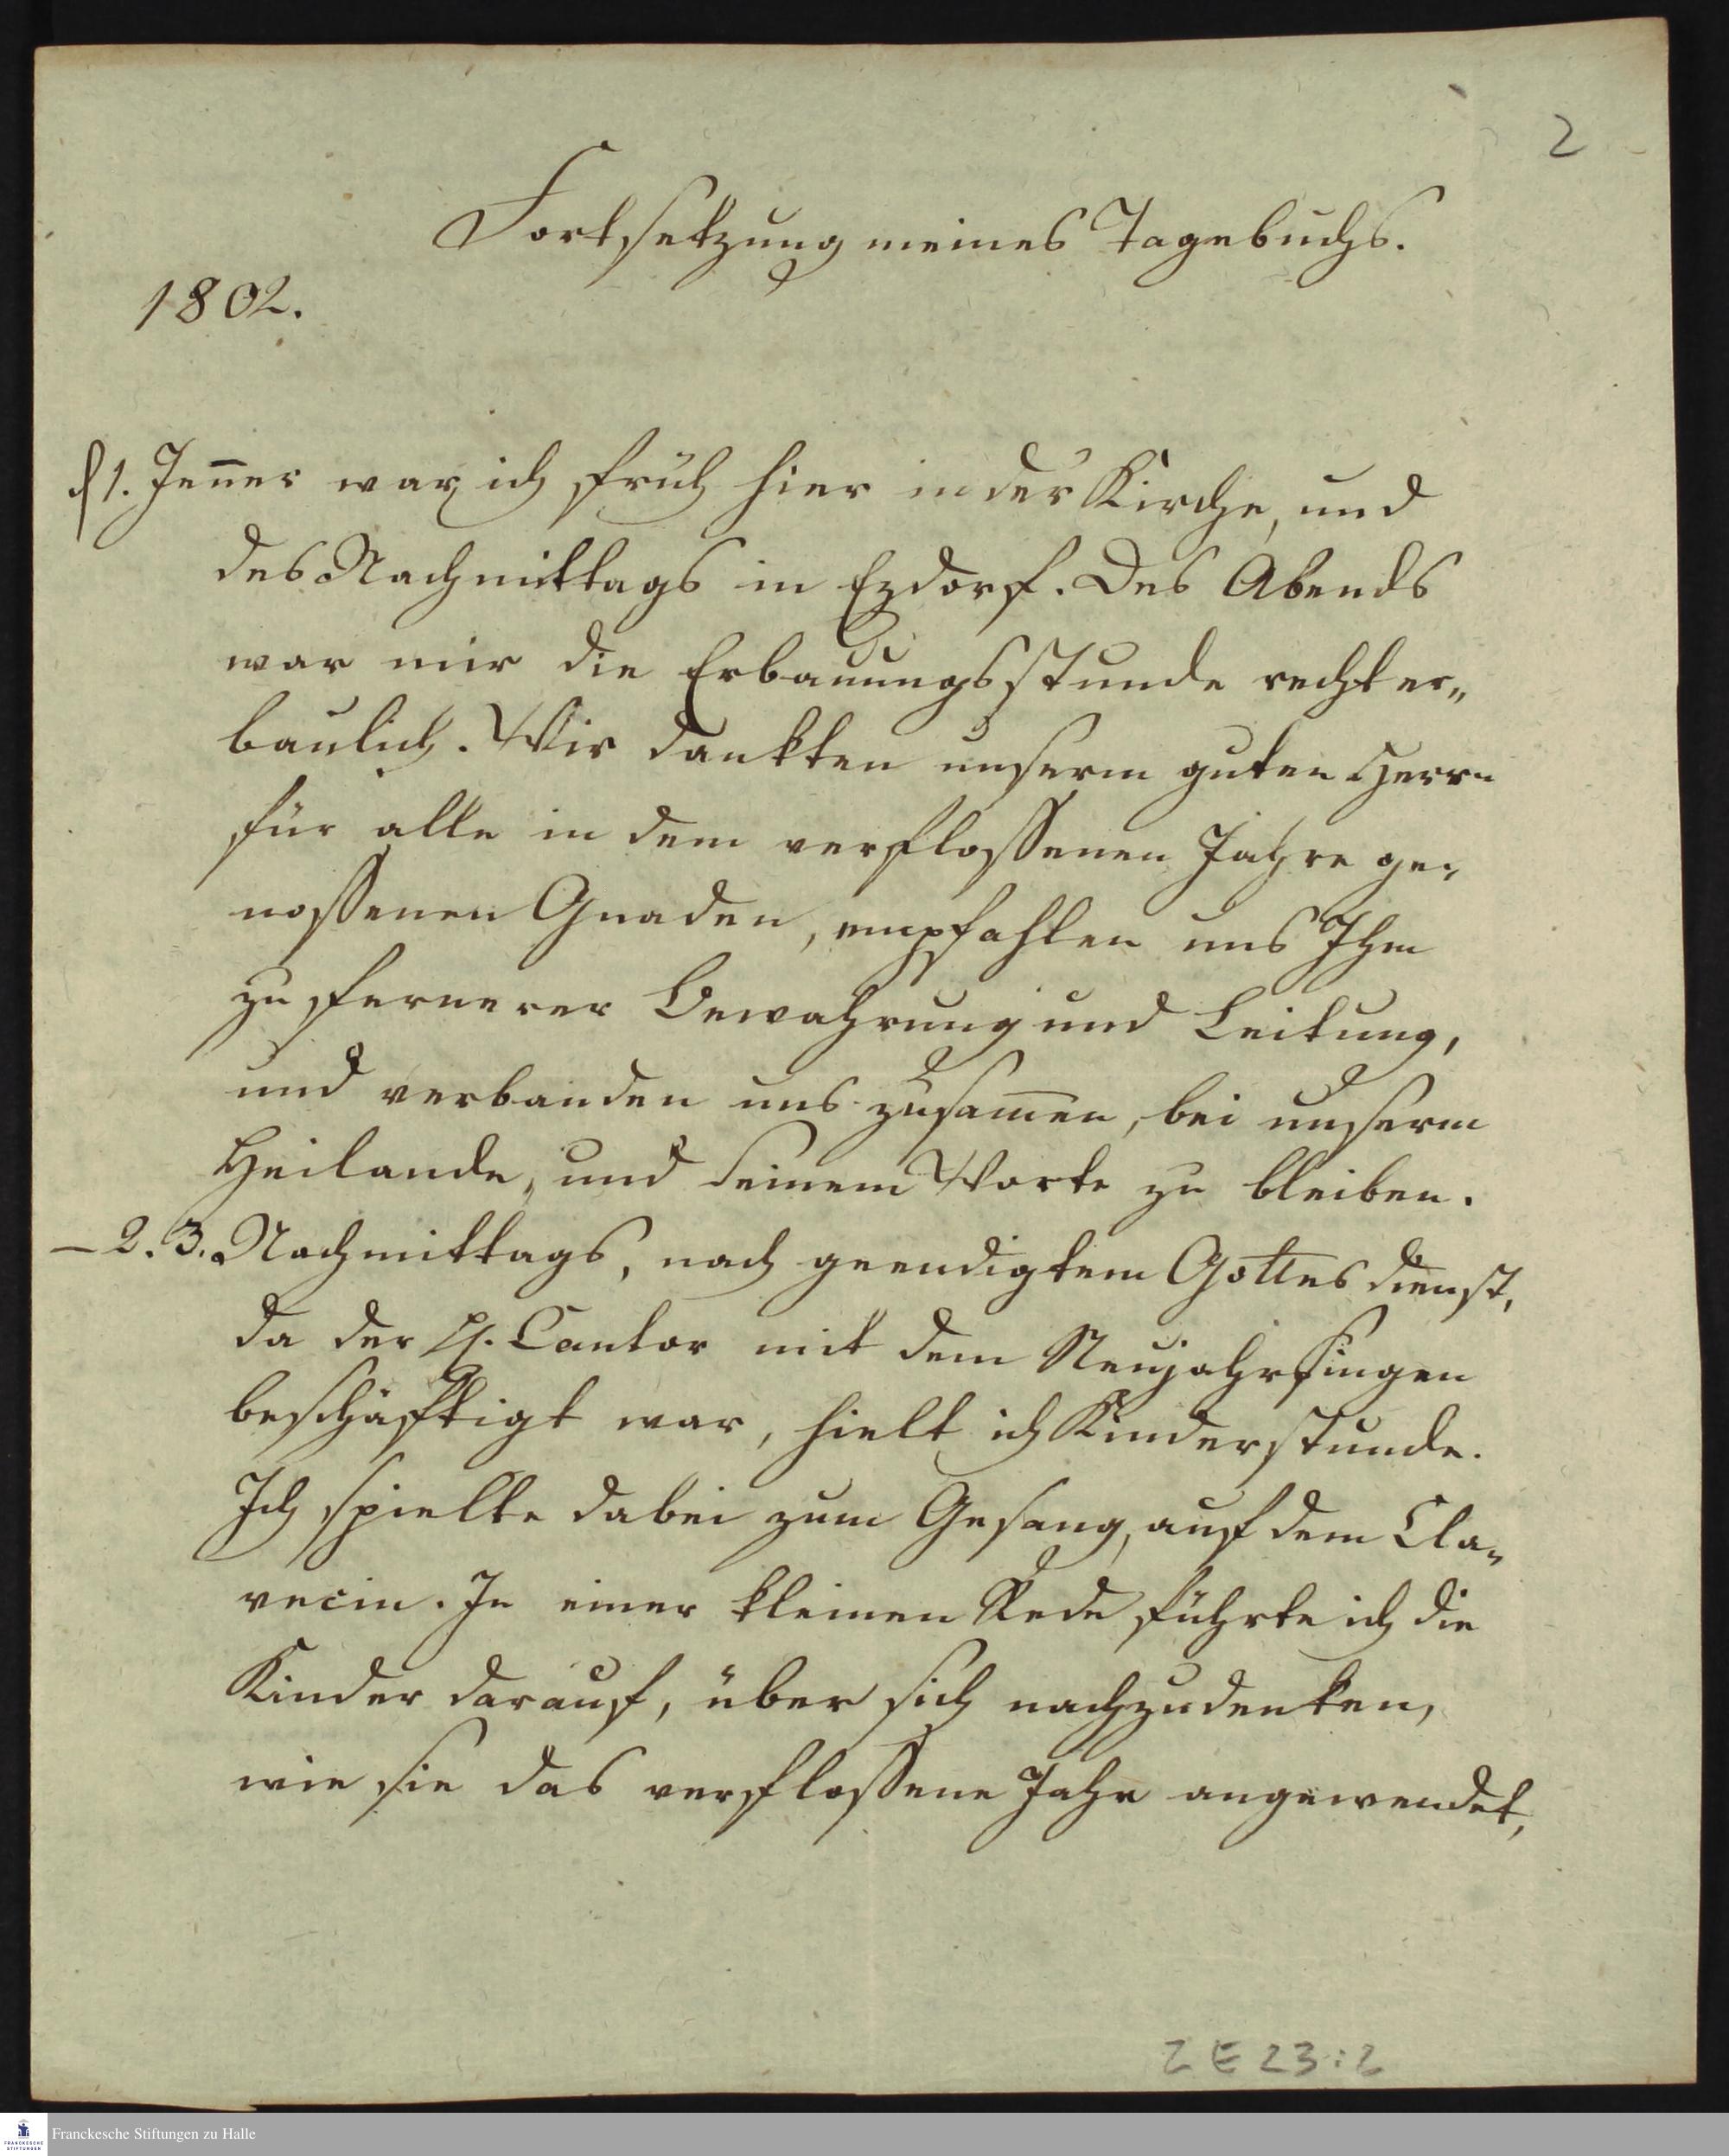 2
Fortsetzung meines Tagebuchs.
1802.
d 1. Jen̄er war ich früh hier in der Kirche, und
des Nachmittags in Ezdorf. Des Abends
war mir die Erbauungsstunde recht er„
baulich. Wir dankten unserm guten Herrn
für alle in dem verfloßenen Jahre ge„
noßenen Gnaden, empfahlen uns Ihm
zu fernerer Bewahrung und Leitung,
und verbanden uns zusam̄en, bei unserm
Heilande, und seinem Worte zu bleiben.
– 2. 3. Nachmittags, nach geendigtem Gottesdienst,
da der H. Cantor mit dem Neujahrsingen
beschäftigt war, hielt ich Kinderstunde.
Ich spielte dabei zum Gesang, auf dem Cla„
vecin. In einer kleinen Rede führte ich die
Kinder darauf, über sich nachzudenken,
wie sie das verfloßene Jahr angewendet,
Z E 23:2
FRANCKESCHE STIFTUNGEN
Franckesche Stiftungen zu Halle